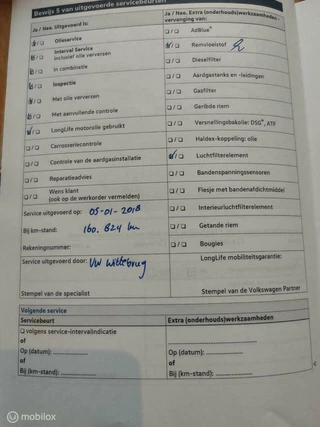 Bewijs 5 van uitgevoerde servicebeurten
Ja / Nee. Uitgevoerd is:
☐ / ☐ Olieservice
☐ / ☐ Interval Service
inclusief olie verversen
☐ / ☐ In combinatie
☐ / ☐ Inspectie
☐ / ☐ Met olie verversen
☐ / ☐ Met aanvullende controle
☑ / ☐ LongLife motorolie gebruikt
☐ / ☐ Carrosseriecontrole
☐ / ☐ Controle van de aardgasinstallatie
☐ / ☐ Reparatieadvies
☐ / ☐ Wens klant
(ook op de werkorder vermelden)
Service uitgevoerd op: 05-01-2018
Bij km-stand: 160.824 km
Rekeningnummer:
Service uitgevoerd door: VW Wittebrug
Stempel van de specialist
Ja / Nee. Extra (onderhouds)werkzaamheden -
vervanging van:
☐ / ☐ AdBlue®
☑ / ☐ Remvloeistof
☐ / ☐ Dieselfilter
☐ / ☐ Aardgastanks en -leidingen
☐ / ☐ Gasfilter
☐ / ☐ Geribde riem
☐ / ☐ Versnellingsbakolie: DSG®, ATF
☐ / ☐ Haldex-koppeling: olie
☑ / ☐ Luchtfilterelement
☐ / ☐ Bandenspanningssensoren
☐ / ☐ Flesje met bandenafdichtmiddel
☐ / ☐ Interieurluchtfilterelement
☐ / ☐ Getande riem
☐ / ☐ Bougies
LongLife mobiliteitsgarantie:
Stempel van de Volkswagen Partner
Volgende service
Servicebeurt
☐ volgens service-intervalindicatie
of
Op (datum):
of
Bij (km-stand):
Extra (onderhouds)werkzaamheden
Op (datum):
of
Bij (km-stand):
mobilox